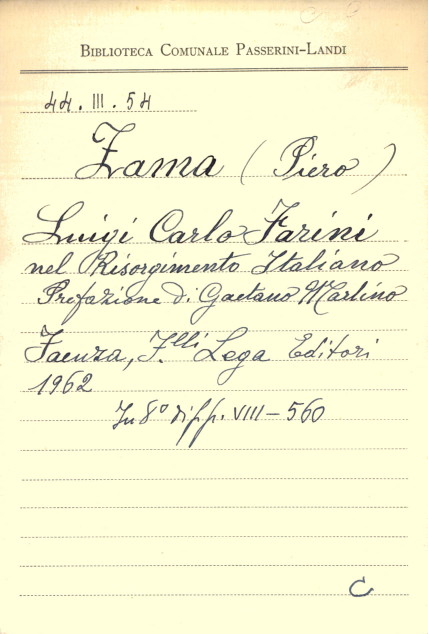 BIBLIOTECA COMUNALE PASSERINI-LANDI
44. III. 54
Zama (Piero)
Luigi Carlo Farini
nel Risorgimento Italiano
Prefazione di Gaetano Martino
Faenza, F.lli Lega Editori
1962
In 8° di pp. VIII-560
C